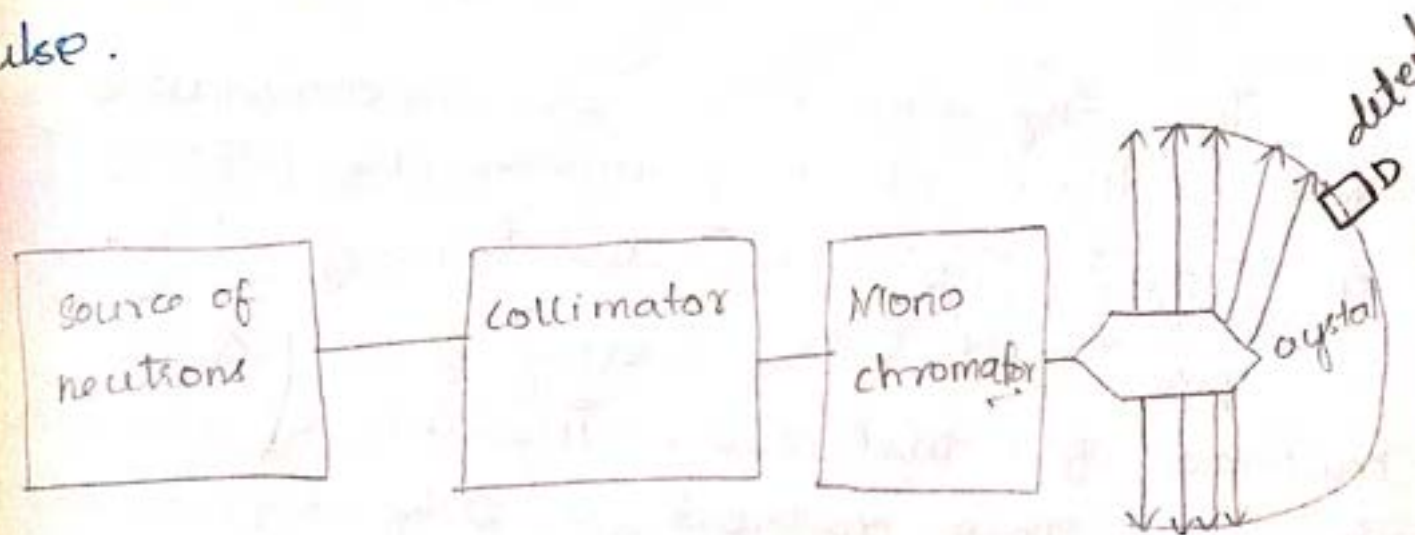 ulse.
source of
neutrons
collimator
Mono
chromator
D